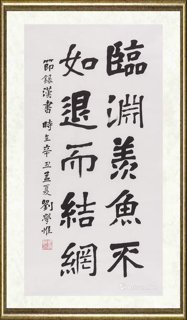 臨淵羨魚不
如退而結網
節錄漢書 時在辛丑孟夏 劉學惟